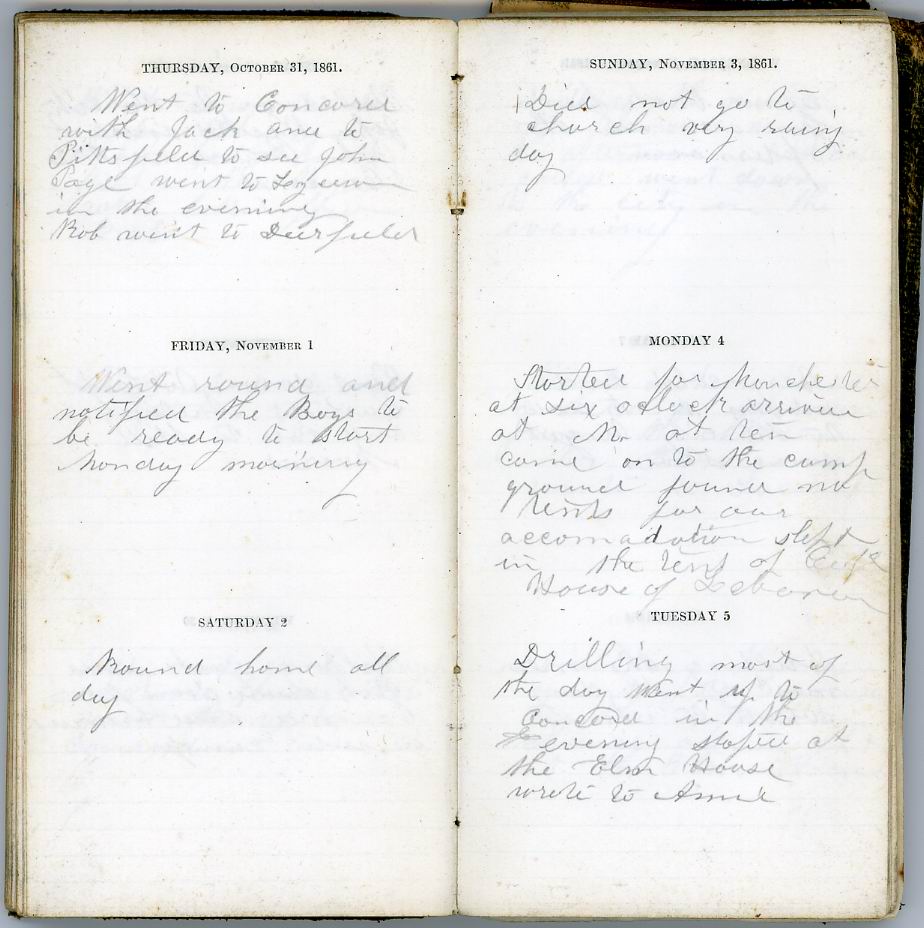 THURSDAY, OCTOBER 31, 1861.
Went to Concord
with Jack and to
Pittsfield to see John
Page went to Lyceum
in the evening
Rob went to Deerfield
FRIDAY, NOVEMBER 1
Went round and
notified the Boys to
be ready to start
Monday morning
SATURDAY 2
Round home all
day
SUNDAY, NOVEMBER 3, 1861.
Did not go to
church very rainy
day
MONDAY 4
Started for Manchester
at six oclock arrived
at M. at ten
came on to the camp
ground found no
tents for our
accomadation slept
in the tent of Capt
House of Lebanon
TUESDAY 5
Drilling most of
the day went up to
Concord in the
evening stoped at
the Elm House
wrote to Annie